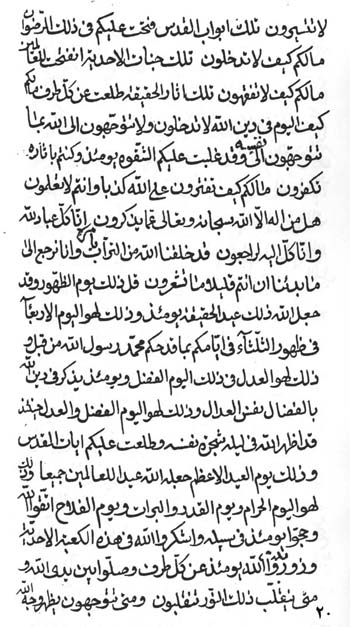 لا تشهرون تلك ابواب القدس فتحت عليكم فى ذلك الرضوان
مالكم كيف لا تدخلون تلك جنات الاحدية انفتحت للعالمين
مالكم كيف لا تفقهون تلك نار الحقيقه طلعت عن كل طرف مالكم
كيف اليوم فى دين الله لا تدخلون ولا تتوجهون الى الله بما
تتوجهون الى نفسه وقد غلبت عليكم الشقوه يومئذ وكنتم باثاره
تكفرون مالكم كيف تفترون على الله كذبا وانتم لا تعلمون
هل من اله الا الله سبحانه وتعالى عما يذكرون انا كل عباد لله
وانا كل اليه لراجعون قد خلقنا الله من التراب بامره وانا نرجع الى
ما بدئنا ان انتم قليلا ما تشعرون قل ذلك يوم الظهور وقد
جعل الله ذلك عيد الحقيقه يومئذ وذلك لهو اليوم الاربعآ
فى ظهور الثلثآء فى ايامكم بما قد حكم محمد رسول الله من قبل و
ذلك لهو العدل فى ذلك اليوم الفضل ويومئذ يذكر فى دين الله
بالفضال نفس العدال وذلك لهو اليوم الفضل والعدل حينئذ
قد اظهر الله فى ليله شجرة نفسه وطلعت عليكم ايات المقدس
وذلك يوم العيد الاعظم جعله الله عيدا للعالمين جميعا وذلك
لهو اليوم الحرام ويوم القدد والبرات ويوم الفلاح اتقوا الله
وحجوا يومئذ فى سبيله واشكروا الله فى هذه الكعبة الاحدية
وزوروا الله يومئذ عن كل طرف وصلوا بين يدى الله و
متى يتقلب ذلك النور تنقلبون ومتى تتوجهون يظهر وجه الله
٢٠